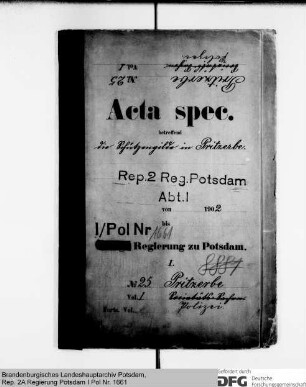 Pritzerbe
Polizei
№ 25
Vol. I
Acta spec.
betreffend
die Schützengilde in Pritzerbe.
Rep. 2 Reg. Potsdam
Abt. I
von 1902
bis
I/Pol Nr 1661
Regierung zu Potsdam.
I.
№ 25 Pritzerbe
Vol. I
Polizei
Forts. Vol.
Brandenburgisches Landeshauptarchiv Potsdam,
Rep. 2A Regierung Potsdam I Pol Nr. 1661
gefördert von der
DFG Deutsche
Forschungsgemeinschaft